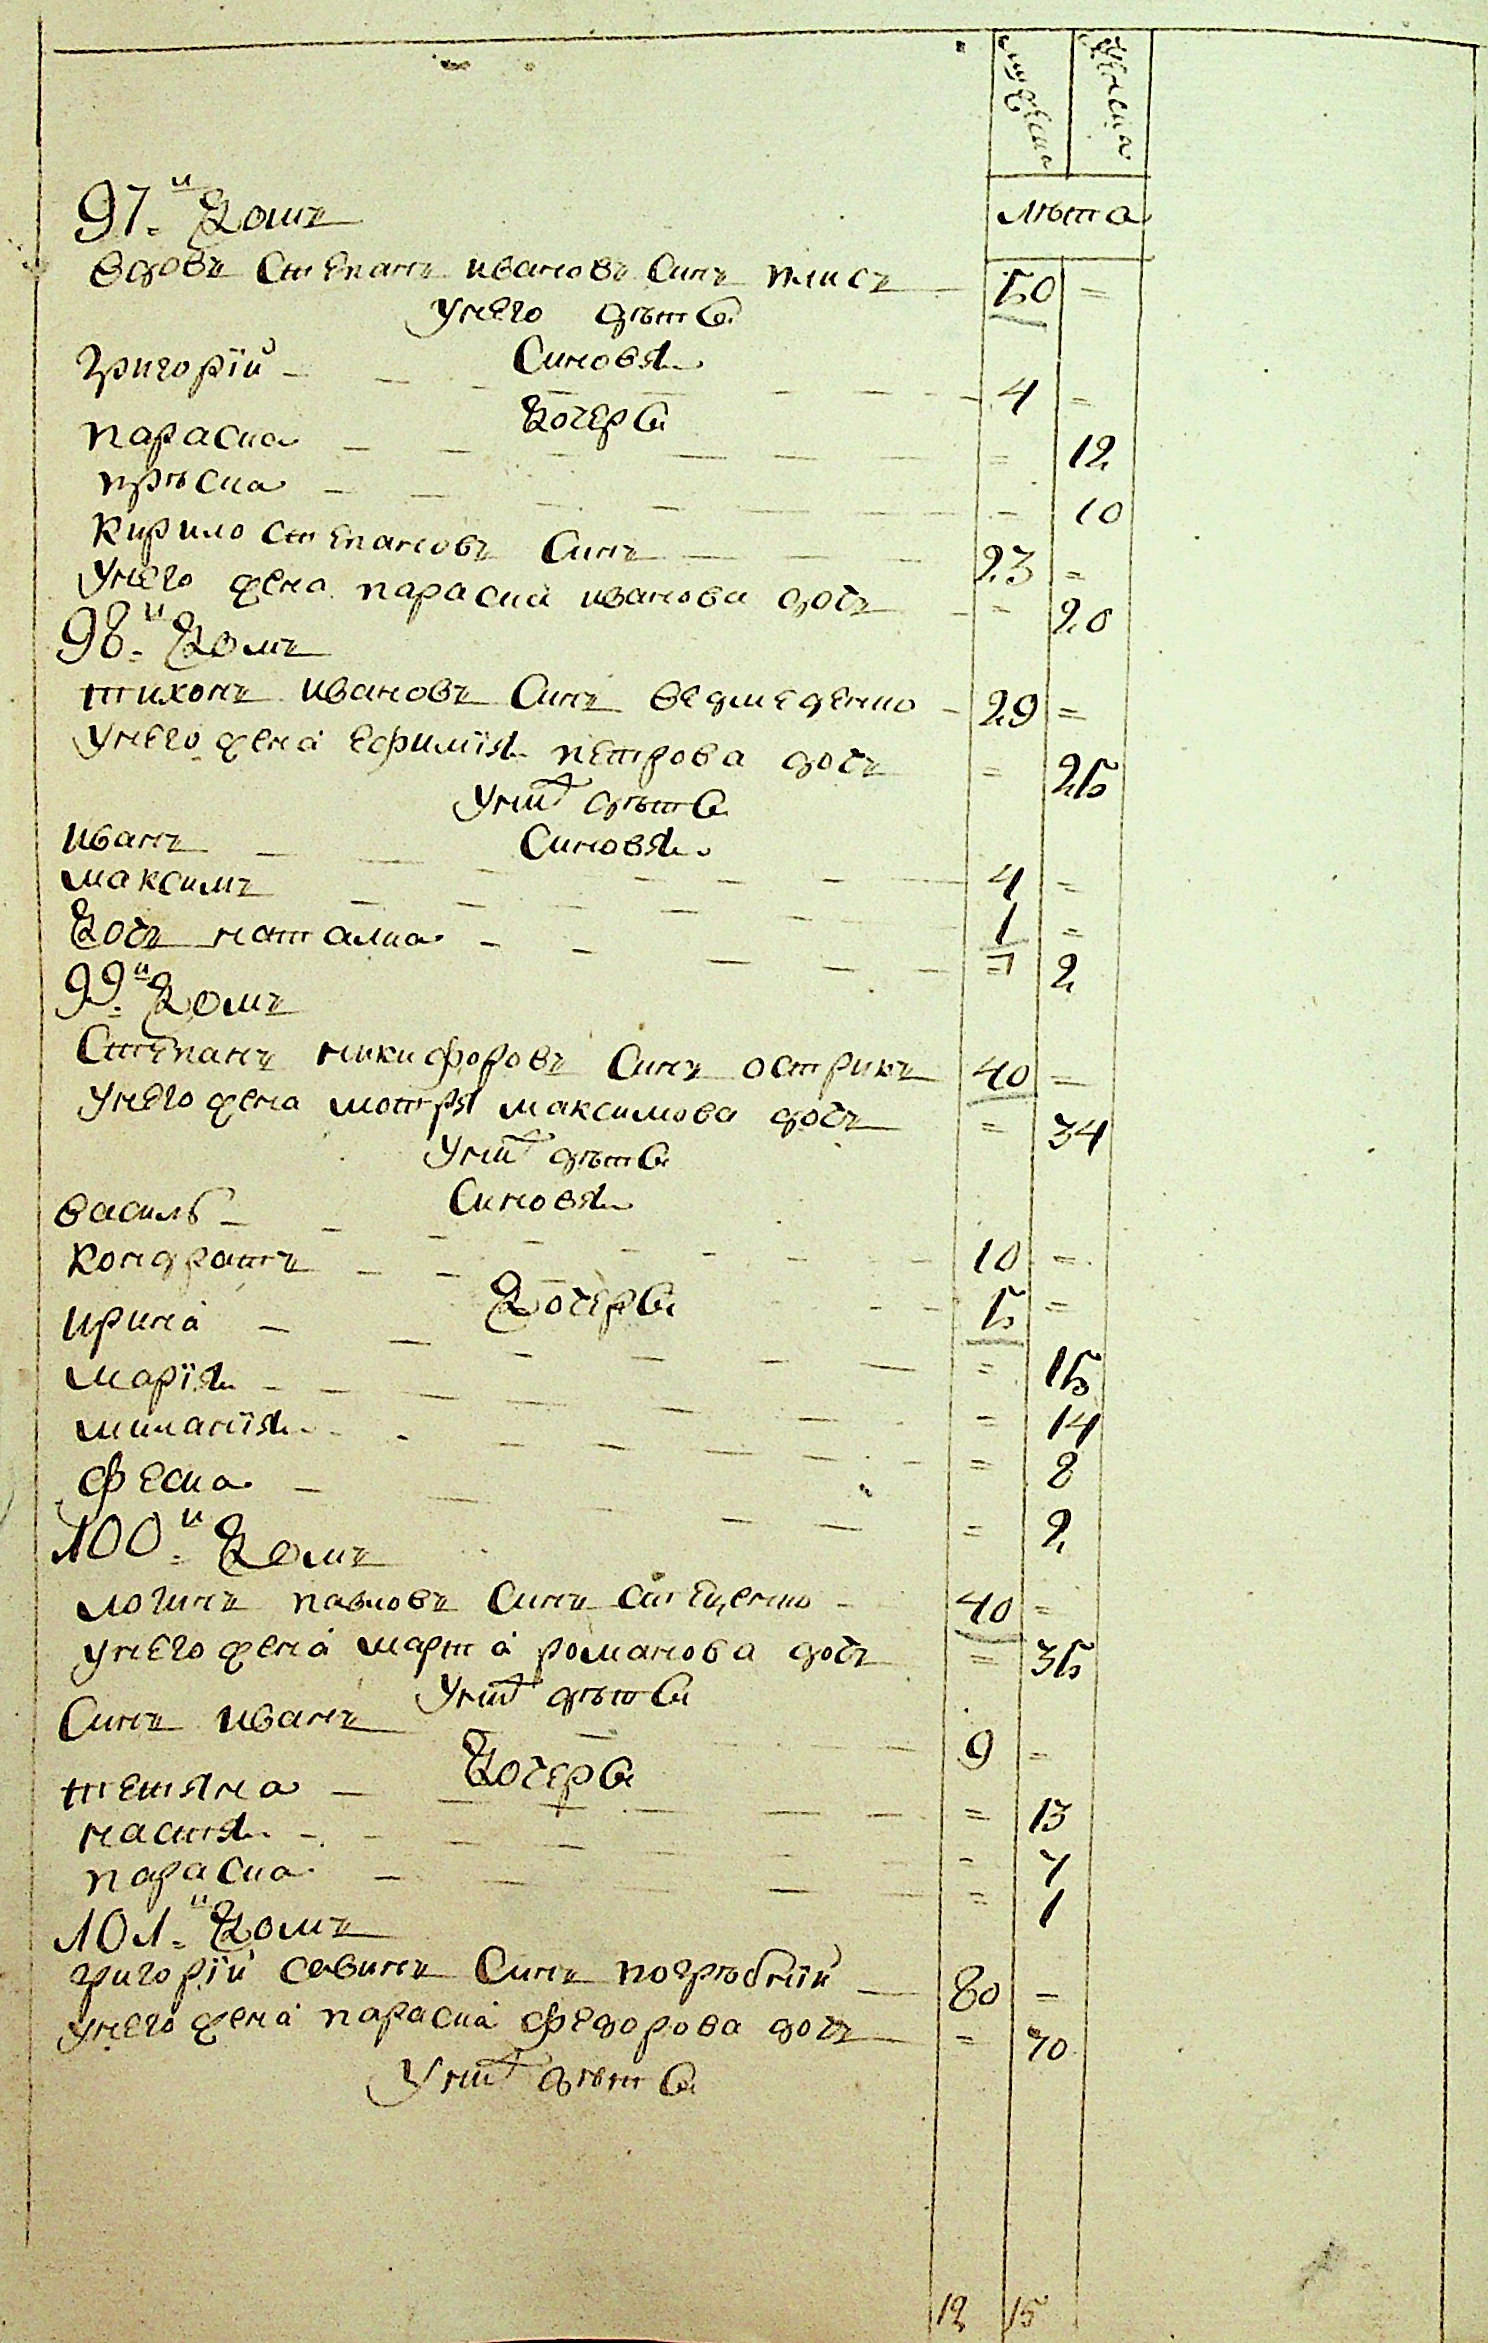 мужеска женска
лѣта
97.й Домъ
вдовъ Степанъ ивановъ Синъ тлисъ 50 =
унего дѣти
Синовя
григорїй 4 =
Дочери
параска = 12
прѣска = 10
Кирило степановъ Синъ 23 =
унего жена параска иванова дочъ = 20
98.й Домъ
тихонъ ивановъ Синъ ведмеденко 29 =
унего жена ефимїя петрова дочъ = 25
уних дѣти
Синовя
иванъ 4 =
максимъ 1 =
Дочъ наталка = 2
99.й Домъ
Степанъ никифоровъ Синъ острикъ 40 =
унего жена мотря максимова дочъ = 34
уних дѣти
Синовя
василь 10 =
Кондратъ 5 =
Дочери
ирина = 15
марїя = 14
миланїя = 8
феска = 2
100.й Домъ
логинъ павловъ Синъ стеценко 40 =
унего жена марта романова дочъ = 35
уних дѣти
Синъ иванъ 9 =
Дочери
тетяна = 13
настя = 7
параска = 1
101.й Домъ
григорїй савинъ Синъ погрѣбнїй 80 =
унего жена параска федорова дочъ = 70
уних дѣти
12 15